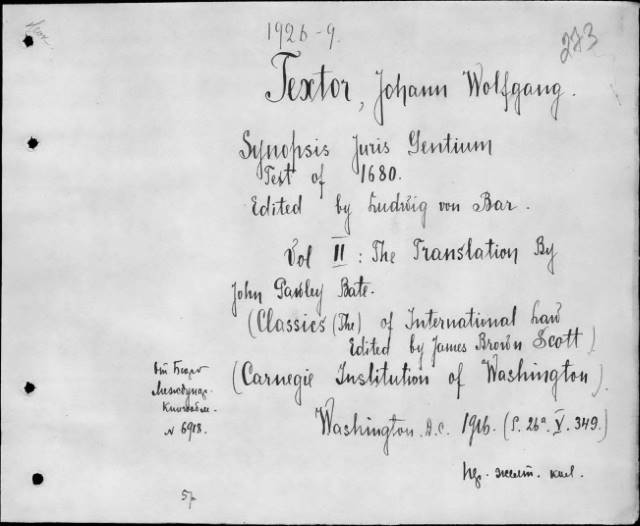 1926-9.
273
Textor, Johann Wolfgang.
Synopsis Juris Gentium
Test of 1680.
Edited by Ludwig von Bar.
Vol II: The Translation By
John Pawley Bate.
(Classics (The) of International Law
Edited by James Brown Scott)
(Carnegie Institution of Washington).
Washington. D.C. 1916. (P. 26a. V. 349.)
От Бюро
Междунар.
Книгообм.
N 6918.
57